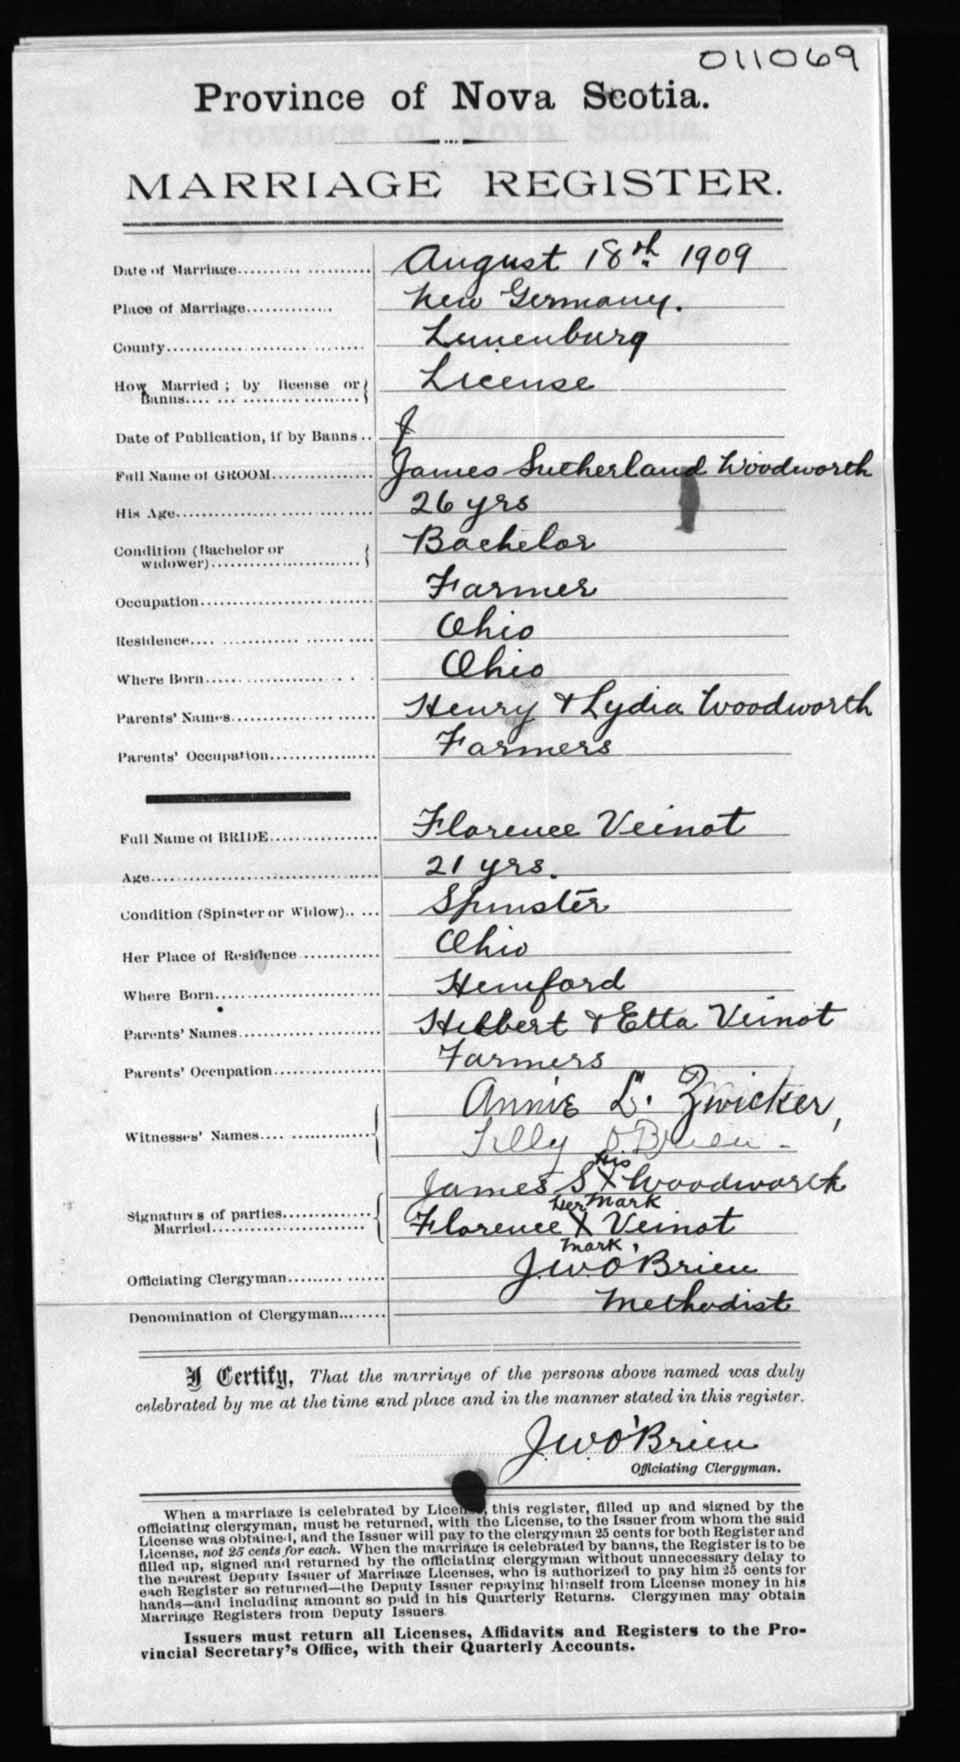 011069
Province of Nova Scotia.
MARRIAGE REGISTER.
Date of Marriage.......... ........... August 18th 1909
Place of Marriage............. New Germany.
County.................... ......... Lunenburg
How Married; by license or License
Banns.... ... ..................
Date of Publication, if by Banns ..
Full Name of GROOM............... James Sutherland Woodworth
His Age............................. 26 yrs
Condition (Bachelor or Bachelor
widower)........................
Occupation......................... Farmer
Residence.... ........... ...... .... Ohio
Where Born..................... . . Ohio
Parents' Names..................... Henry & Lydia Woodworth
Parents' Occupation................ Farmers
Full Name of BRIDE................ Florence Veinot
Age................................. 21 yrs.
Condition (Spinster or Widow).. ... Spinster
Her Place of Residence ............ Ohio
Where Born......................... Hemford
Parents' Names..................... Hilbert & Etta Veinot
Parents' Occupation................ Farmers
Annie L. Zwicker,
Witnesses' Names.... .............. Tilly O'Brien -
His
James S X Woodworth
Signatures of parties............. Her Mark
Married....................... Florence X Veinot
mark,
Officiating Clergyman......... ...... J.W.O'Brien
Denomination of Clergyman........ Methodist
I Certify, That the marriage of the persons above named was duly
celebrated by me at the time and place and in the manner stated in this register.
J.W.O'Brien
Officiating Clergyman.
When a marriage is celebrated by License, this register, filled up and signed by the
officiating clergyman, must be returned, with the License, to the Issuer from whom the said
License was obtained, and the Issuer will pay to the clergyman 25 cents for both Register and
License, not 25 cents for each. When the marriage is celebrated by banns, the Register is to be
filled up, signed and returned by the officiating clergyman without unnecessary delay to
the nearest Deputy Issuer of Marriage Licenses, who is authorized to pay him 25 cents for
each Register so returned—the Deputy Issuer repaying himself from License money in his
hands—and including amount so paid in his Quarterly Returns. Clergymen may obtain
Marriage Registers from Deputy Issuers
Issuers must return all Licenses, Affidavits and Registers to the Pro-
vincial Secretary's Office, with their Quarterly Accounts.